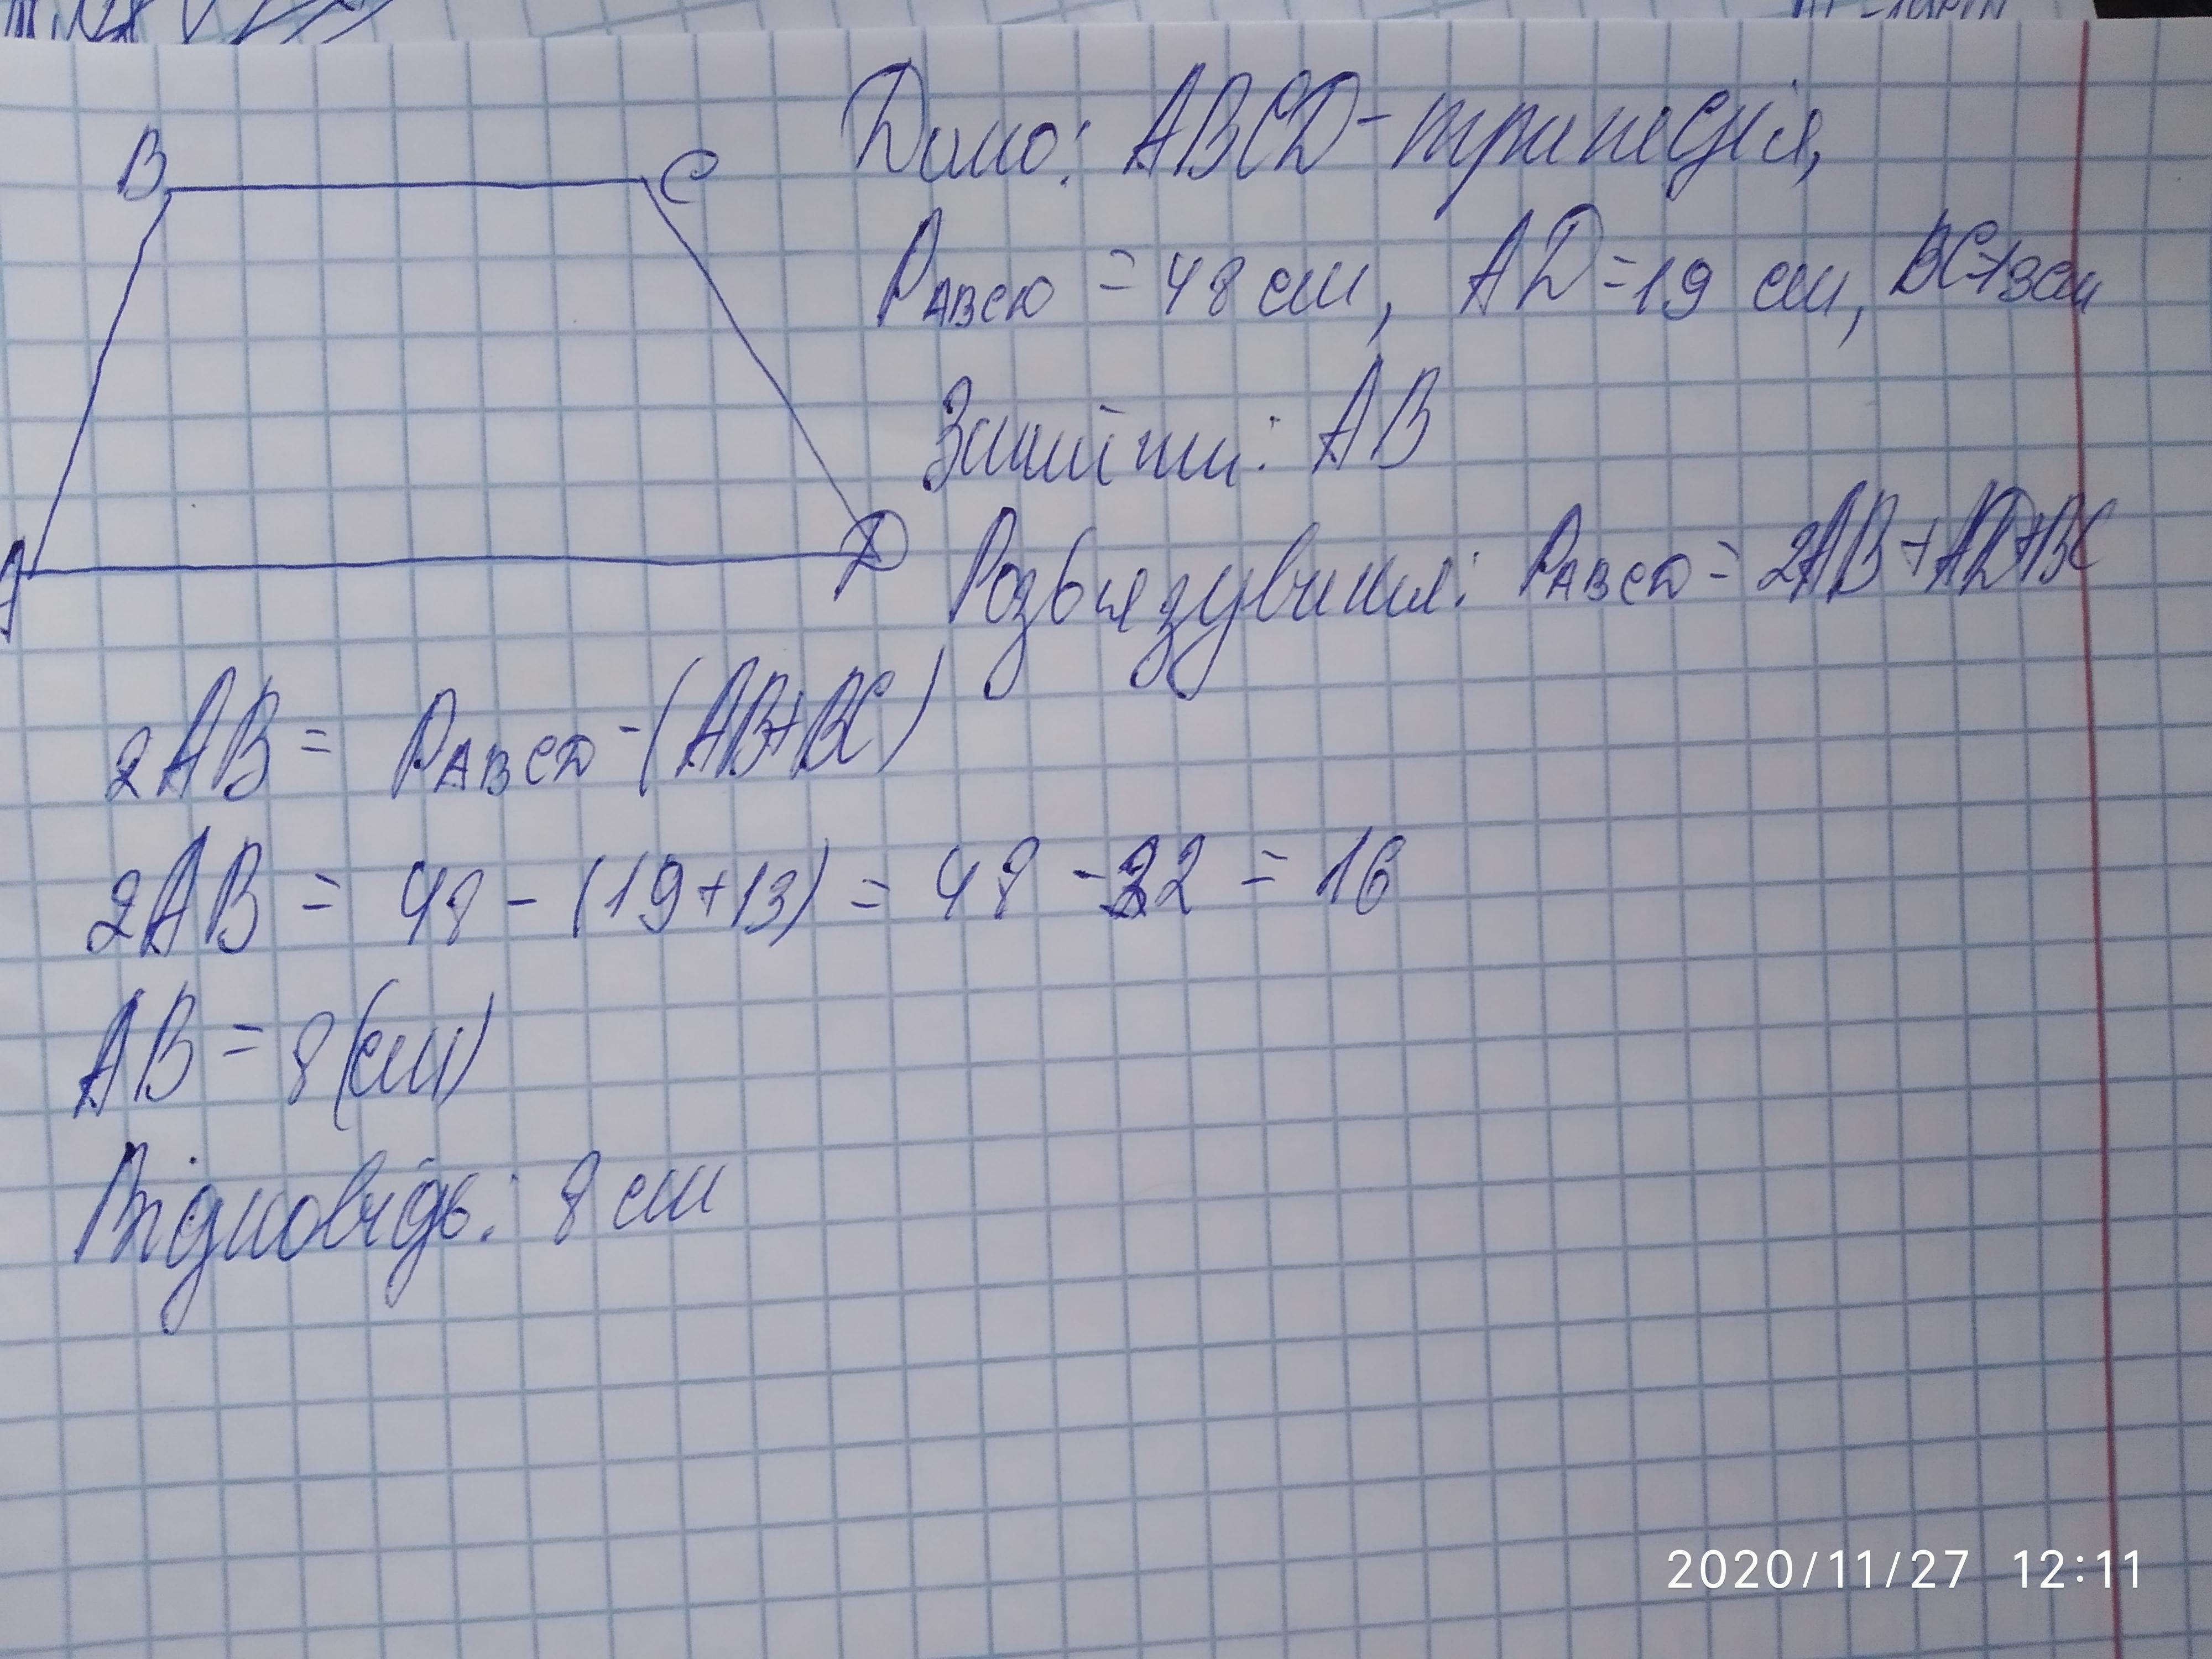 B
C
A
D
Дано: ABCD - трапеція,
P ABCD = 48 см, AD = 19 см, BC=13см
Знайти: AB
Розв'язування: P ABCD = 2AB + AD+BC
2AB = P ABCD - (AB+BC)
2AB = 48 - (19+13) = 48 - 32 = 16
AB = 8 (см)
Відповідь: 8 см
2020/11/27 12:11